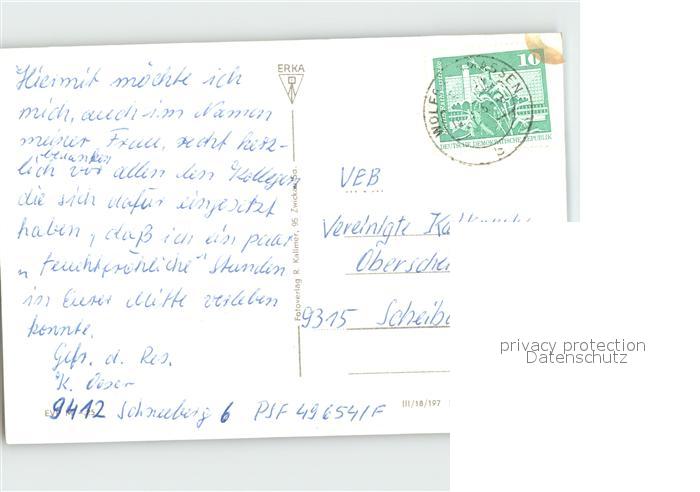 Hiermit möchte ich
mich, auch im Namen
meiner Frau, recht herz-
lich vor allen den Kollegen
bedanken
die sich dafür eingesetzt
haben, daß ich ein paar
„Feuchtfröhliche" Stunden
in Eurer Mitte verleben
konnte.
Gefr. d. Res.
K. Oeser
9412 Schneeberg 6 PSF 49654/F
ERKA
Fotoverlag R. Kallmer, 95 Zwickau
III/18/197
10
DEUTSCHE DEMOKRATISCHE REPUBLIK
VEB
Vereinigte
Obersche
9315 Scheibe
privacy protection
Datenschutz